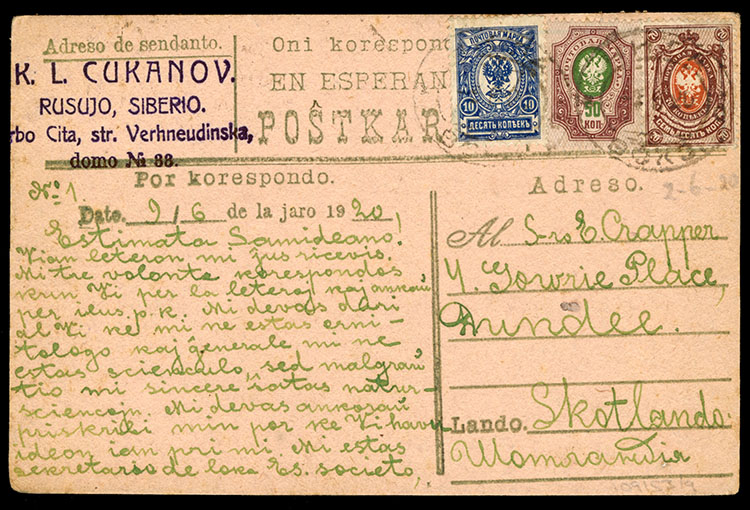 Adreso de sendanto.
K. L. CUKANOV.
RUSUJO, SIBERIO.
rbo Cita, str. Verhneudinska,
domo № 88.
Oni korespont
EN ESPERAN
POŜTKAR
ПОЧТОВАЯ МАРКА
10 10
ДЕСЯТЬ КОПѢЕКЪ
ПОЧТОВАЯ МАРКА
50
КОП.
70 70
СЕМЬДЕСЯТЪ КОП.
Por korespondo.
Adreso.
2-6-20
№ 1.
Date. 9/6 de la jaro 1920
Estimata Samideano!
Vian leteron mi ĵus ricevis.
Mi tre volonte korespondos
kun Vi per la leteroj kaj ankaŭ
per ilus. p.k. Mi devas diri
al Vi ke mi ne estas orni-
tologo kaj ĝenerale mi ne
estas scienculo, sed malgraŭ
tio mi sincere ŝatas natur-
sciencojn. Mi devas ankoraŭ
priskribi min por ke Vi havu
ideon ian pri mi. Mi estas
sekretario de loka Es. societo,
Al S-ro E. Crapper
Y. Gowrie Place,
Dundee.
Lando. Skotlando
Шотландія